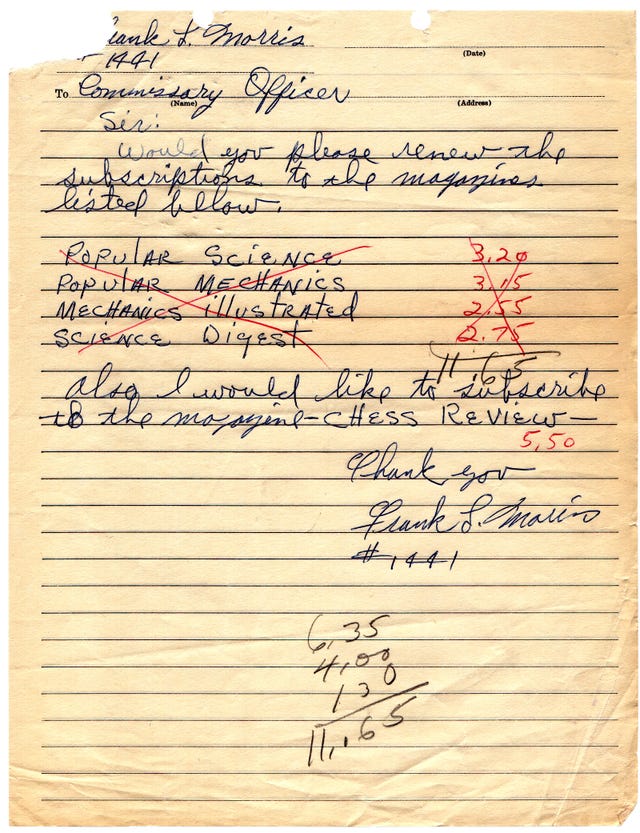 rank L. Morris
(Date)
1441
To Commissary Officer
(Name) (Address)
Sir:
Would you please renew the
subscriptions to the magazines
listed bellow.
POPULAR SCIENCE 3.20
POPULAR MECHANICS 3.15
MECHANICS illustrated 2.55
SCIENCE DIgEST 2.75
11.65
Also I would like to subscribe
to the magazine—CHESS REVIEW—
5,50
Thank you
Frank L. Morris
#1441
6,35
4,00
130
11,65